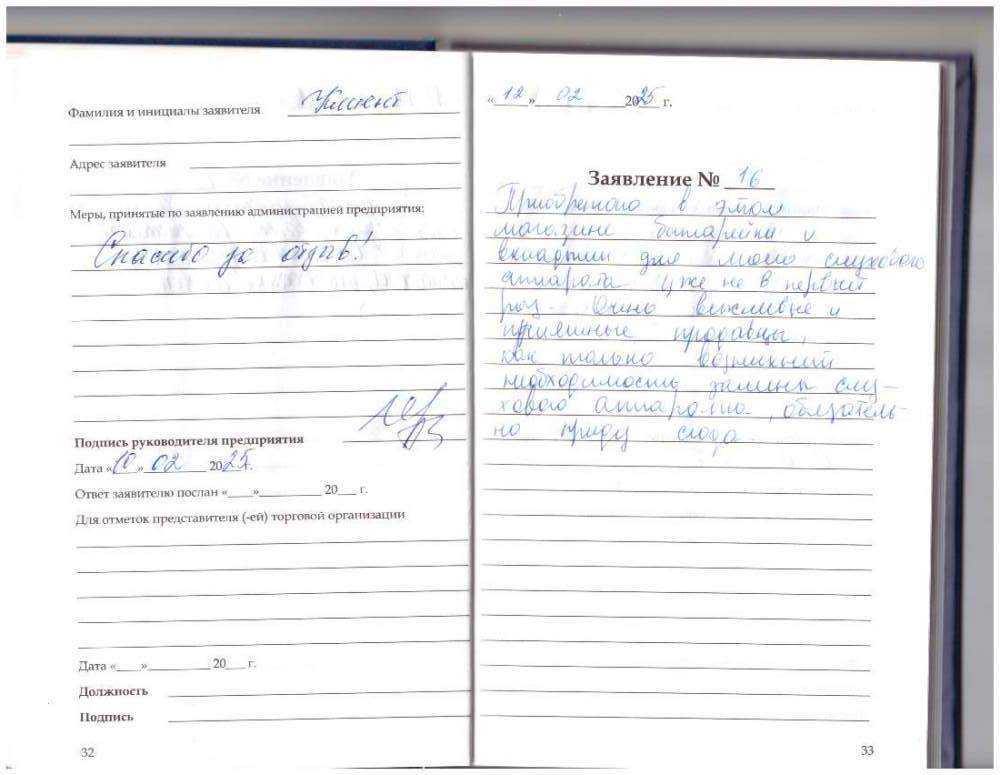 Фамилия и инициалы заявителя Клиент
Адрес заявителя
Меры, принятые по заявлению администрацией предприятия:
Спасибо за отзыв!
Подпись руководителя предприятия
Дата «10» 02 2025г.
Ответ заявителю послан «____»__________ 20___ г.
Для отметок представителя (-ей) торговой организации
Дата «____»__________ 20___ г.
Должность
Подпись
32
«12» 02 2025 г.
Заявление № 16
Приобретаю в этом
магазине батарейки и
вкладыши для моего слухового
аппарата уже не в первый
раз. Очень вежливые и
приятные продавцы,
как только возникнит
необходимость замены слу-
хового аппарата, обязатель-
но приду сюда.
33